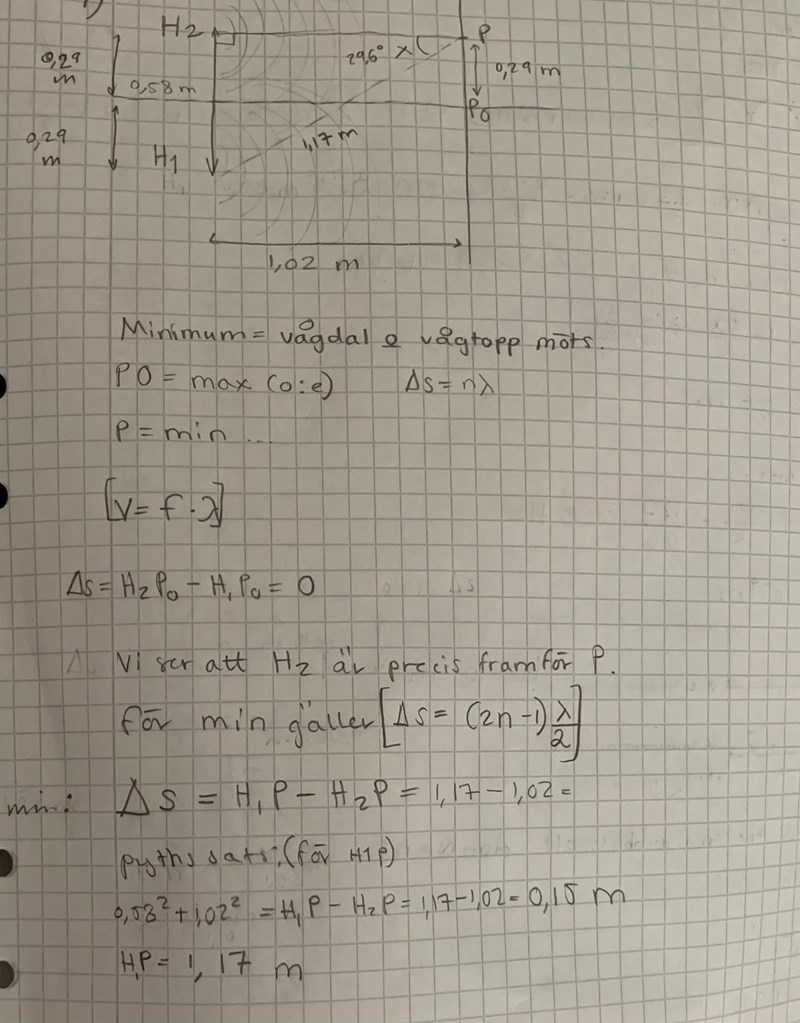 H2
P
0,29 m
29,6° x
0,29 m
0,58 m
P0
0,29 m
1,17 m
H1
1,02 m
Minimum = vågdal o vågtopp möts.
P0 = max (o:e) Δs = nλ
P = min ...
[v = f · λ]
Δs = H₂P₀ - H₁P₀ = 0
Vi ser att H₂ är precis framför P.
För min gäller [Δs = (2n-1) λ/2]
min: Δs = H₁P - H₂P = 1,17 - 1,02 =
pyths sats: (för H1P)
0,58² + 1,02² = H₁P - H₂P = 1,17 - 1,02 = 0,15 m
H₁P = 1,17 m